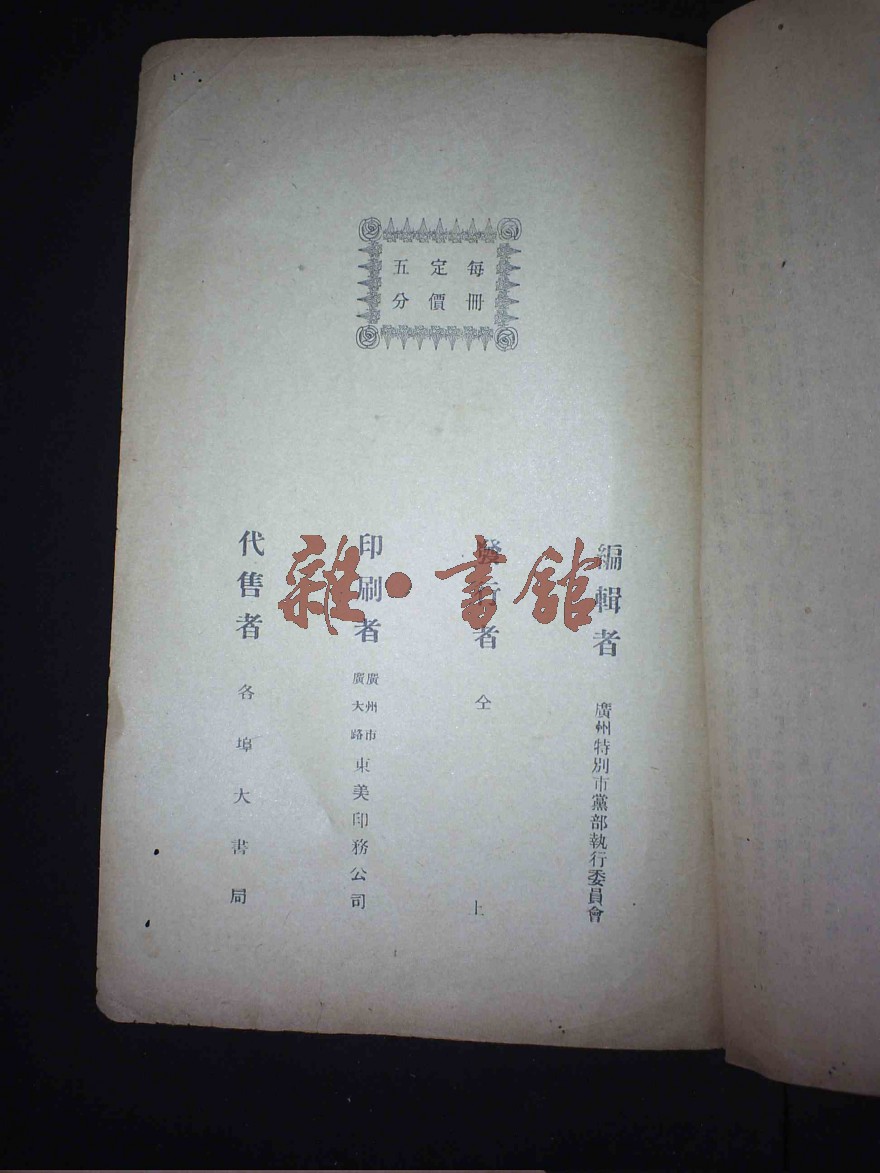 每冊
定價
五分
編輯者 廣州特別市黨部執行委員會
發行者 仝上
印刷者 廣州市廣大路東美印務公司
代售者 各埠大書局
雜·書館